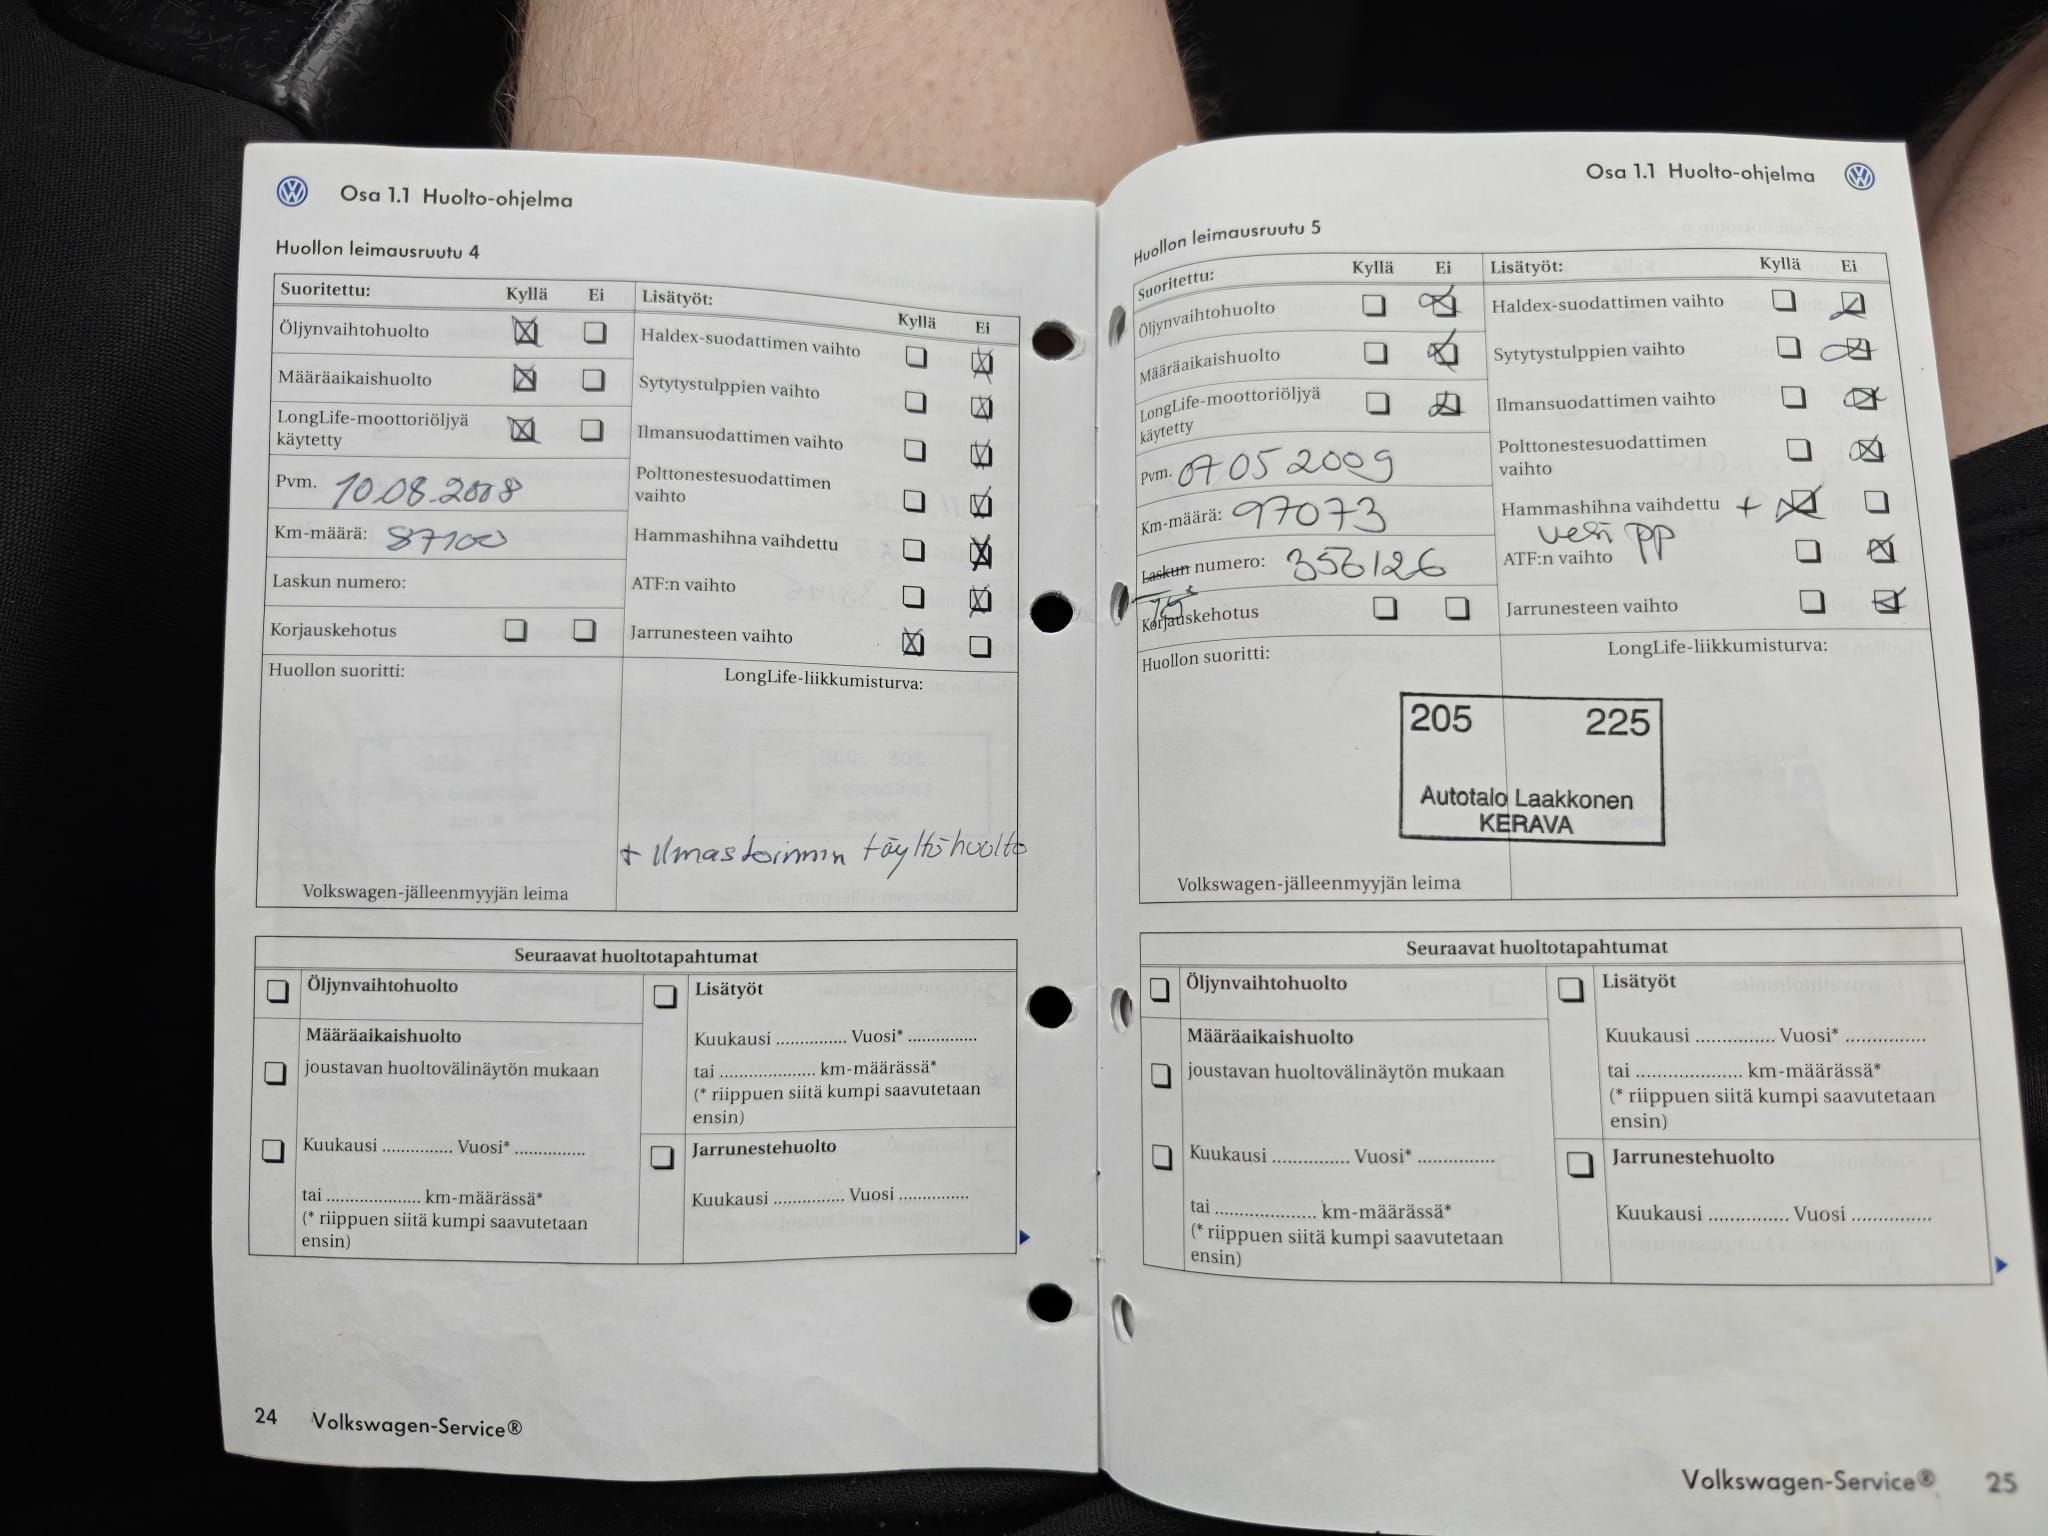 Osa 1.1 Huolto-ohjelma
Huollon leimausruutu 4
Suoritettu: Kyllä Ei
Öljynvaihtohuolto
Määräaikaishuolto
LongLife-moottoriöljyä
käytetty
Pvm. 10.08.2008
Km-määrä: 87100
Laskun numero:
Korjauskehotus
Lisätyöt: Kyllä Ei
Haldex-suodattimen vaihto
Sytytystulppien vaihto
Ilmansuodattimen vaihto
Polttonestesuodattimen
vaihto
Hammashihna vaihdettu
ATF:n vaihto
Jarrunesteen vaihto
Huollon suoritti:
LongLife-liikkumisturva:
+ Ilmastoinnin täyttöhuolto
Volkswagen-jälleenmyyjän leima
Seuraavat huoltotapahtumat
Öljynvaihtohuolto
Määräaikaishuolto
joustavan huoltovälinäytön mukaan
Kuukausi ............... Vuosi* ...............
tai .................... km-määrässä*
(* riippuen siitä kumpi saavutetaan
ensin)
Lisätyöt
Kuukausi ............... Vuosi* ...............
tai .................... km-määrässä*
(* riippuen siitä kumpi saavutetaan
ensin)
Jarrunestehuolto
Kuukausi ............... Vuosi ...............
24 Volkswagen-Service®
Osa 1.1 Huolto-ohjelma
Huollon leimausruutu 5
Suoritettu: Kyllä Ei
Öljynvaihtohuolto
Määräaikaishuolto
LongLife-moottoriöljyä
käytetty
Pvm. 07 05 2009
Km-määrä: 97073
Laskun numero: 356126
Korjauskehotus
Lisätyöt: Kyllä Ei
Haldex-suodattimen vaihto
Sytytystulppien vaihto
Ilmansuodattimen vaihto
Polttonestesuodattimen
vaihto
Hammashihna vaihdettu +
vesi pp
ATF:n vaihto
Jarrunesteen vaihto
Huollon suoritti:
LongLife-liikkumisturva:
205 225
Autotalo Laakkonen
KERAVA
Volkswagen-jälleenmyyjän leima
Seuraavat huoltotapahtumat
Öljynvaihtohuolto
Määräaikaishuolto
joustavan huoltovälinäytön mukaan
Kuukausi ............... Vuosi* ...............
tai .................... km-määrässä*
(* riippuen siitä kumpi saavutetaan
ensin)
Lisätyöt
Kuukausi ............... Vuosi* ...............
tai .................... km-määrässä*
(* riippuen siitä kumpi saavutetaan
ensin)
Jarrunestehuolto
Kuukausi ............... Vuosi ...............
Volkswagen-Service® 25